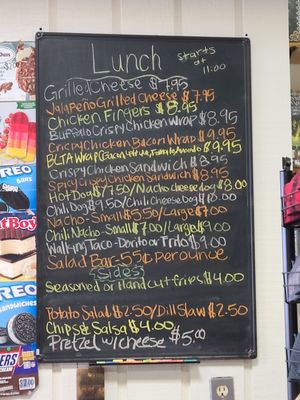 Lunch
starts
at
11:00
Grilled Cheese $7.95
Jalapeño Grilled Cheese $7.95
Chicken Fingers $8.95
Buffalo Crispy Chicken Wrap $8.95
Crispy Chicken Bacon Wrap $9.95
BLTA Wrap (Bacon, Lettuce, Tomato, Avocado) $9.95
Crispy Chicken Sandwich $8.95
Spicy Crispy Chicken Sandwich $8.95
Hot Dog $7.50/Nacho cheese dog $8.00
Chili Dog $9.50/Chili Cheese Dog $10.00
Nacho-Small $5.50/Large $7.00
Chili Nacho-Small $7.00/Large $9.00
Walking Taco-Dorito or Frito $9.00
Salad Bar-55¢ per ounce
Sides
Seasoned or Hand cut fries $4.00
Potato Salad $2.50/Dill Slaw $2.50
Chips & Salsa $4.00
Pretzel w/cheese $5.00
OREO
BARS
OREO